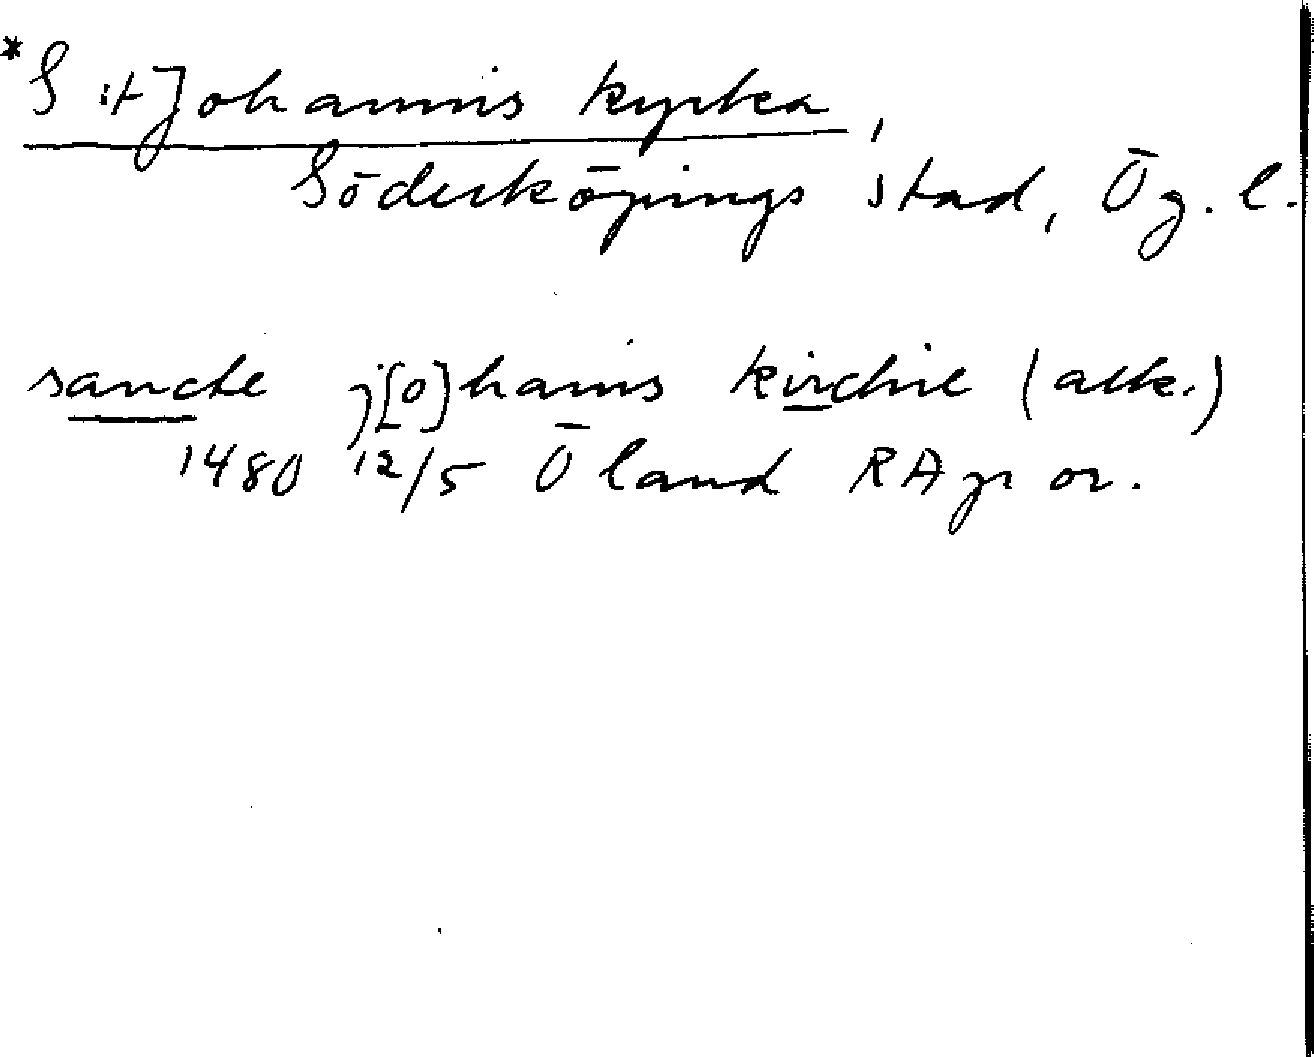 *S:t Johannis kyrka,
Söderköpings stad, Ög. l.
sancte j[o]hanis kirchie (ack.)
1480 12/5 Öland RAp or.